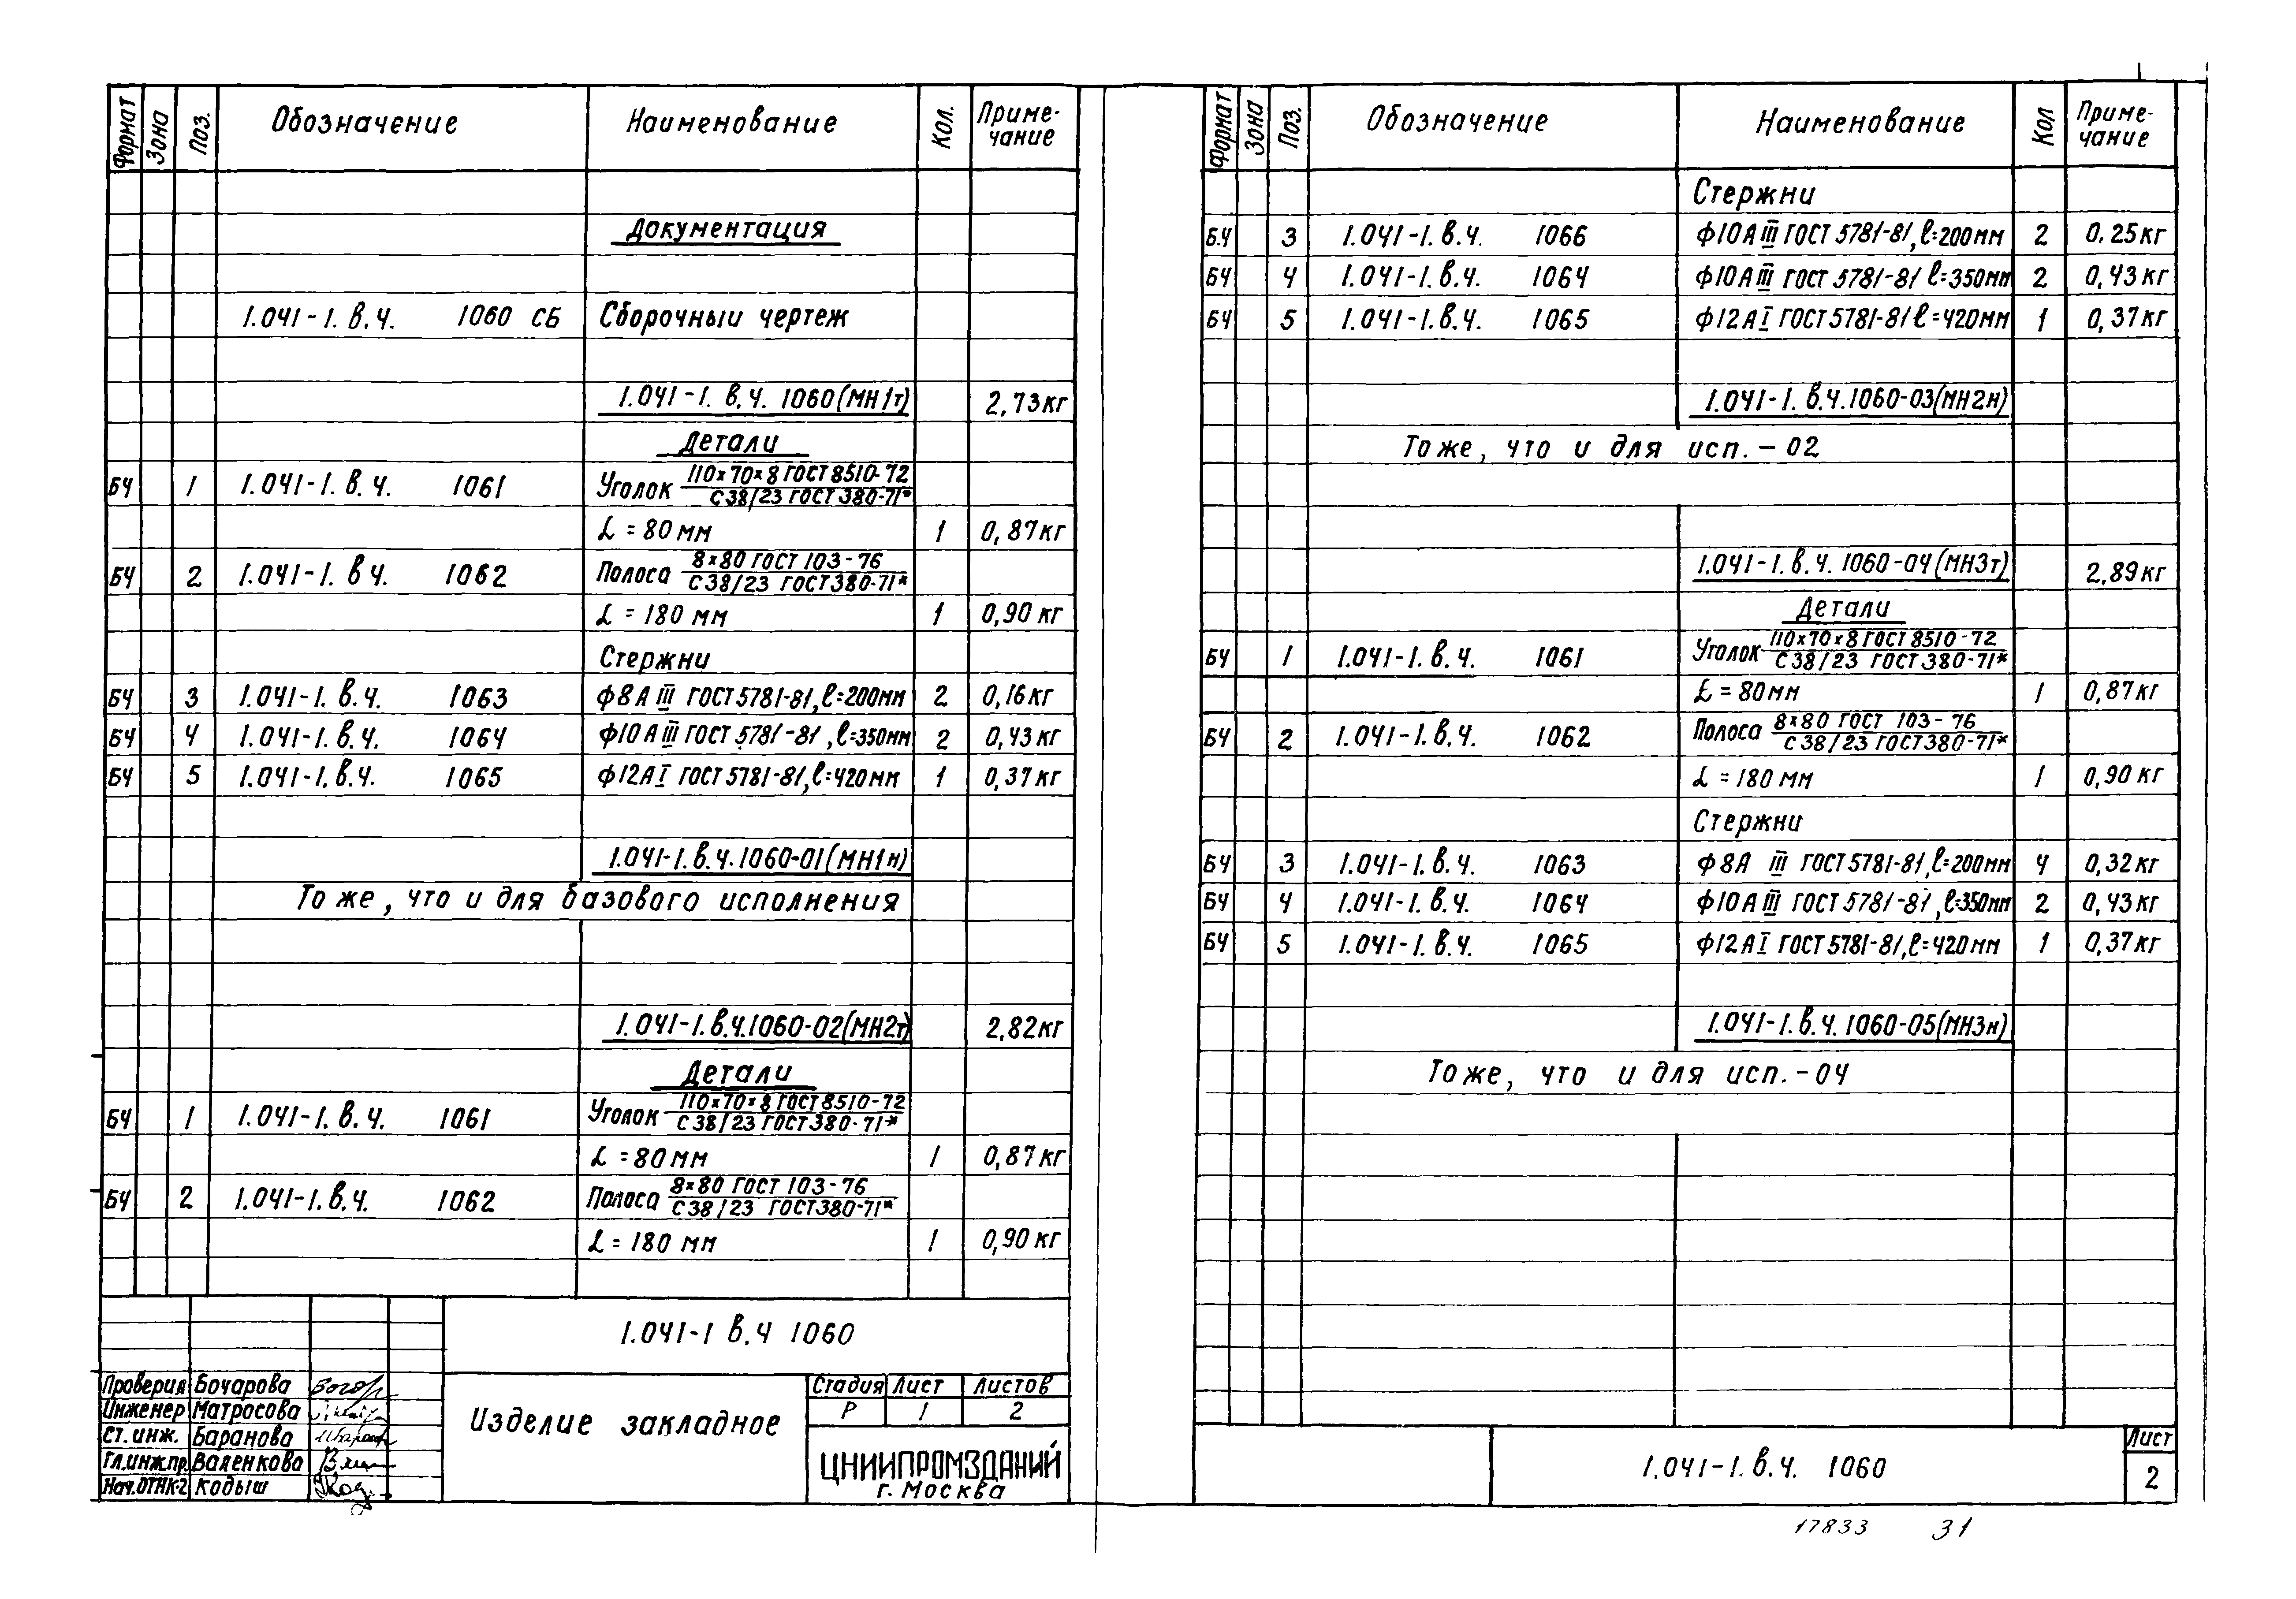 Формат Зона Поз. Обозначение Наименование Кол. Приме-
чание
Документация
1.041-1. в.ч. 1060 СБ Сборочный чертеж
1.041-1. в.ч. 1060 (МН1т) 2,73кг
Детали
БЧ 1 1.041-1. в.ч. 1061 Уголок 110×70×8 ГОСТ 8510-72
С38/23 ГОСТ 380-71*
L = 80 мм 1 0,87кг
БЧ 2 1.041-1. в ч. 1062 Полоса 8×80 ГОСТ 103-76
С38/23 ГОСТ 380-71*
L = 180 мм 1 0,90 кг
Стержни
БЧ 3 1.041-1. в.ч. 1063 Ф8А III ГОСТ 5781-81, l=200мм 2 0,16кг
БЧ 4 1.041-1. в.ч. 1064 Ф10А III ГОСТ 5781-81, l=350мм 2 0,43кг
БЧ 5 1.041-1. в.ч. 1065 Ф12А I ГОСТ 5781-81, l=420мм 1 0,37кг
1.041-1. в.ч. 1060-01 (МН1н)
То же, что и для базового исполнения
1.041-1. в.ч. 1060-02 (МН2т) 2,82кг
Детали
БЧ 1 1.041-1. в.ч. 1061 Уголок 110×70×8 ГОСТ 8510-72
С38/23 ГОСТ 380-71*
L = 80мм 1 0,87кг
БЧ 2 1.041-1. в.ч. 1062 Полоса 8×80 ГОСТ 103-76
С38/23 ГОСТ 380-71*
L = 180 мм 1 0,90 кг
1.041-1 в.ч 1060
Проверил Бочарова
Инженер Матросова
Ст. инж. Баранова
Гл.инж.пр. Валенкова
Нач.ОТНК-2 Кодыш
Изделие закладное
Стадия Лист Листов
Р 1 2
ЦНИИПРОМЗДАНИЙ
г. Москва
Формат Зона Поз. Обозначение Наименование Кол Приме-
чание
Стержни
Б.Ч 3 1.041-1. в.ч. 1066 Ф10А III ГОСТ 5781-81, l=200мм 2 0,25кг
БЧ 4 1.041-1. в.ч. 1064 Ф10А III ГОСТ 5781-81 l=350мм 2 0,43кг
БЧ 5 1.041-1. в.ч. 1065 Ф12А I ГОСТ 5781-81 l=420мм 1 0,37кг
1.041-1. в.ч. 1060-03 (МН2н)
То же, что и для исп. - 02
1.041-1. в.ч. 1060-04 (МН3т) 2,89кг
Детали
БЧ 1 1.041-1. в.ч. 1061 Уголок 110×70×8 ГОСТ 8510-72
С38/23 ГОСТ 380-71*
L = 80мм 1 0,87кг
БЧ 2 1.041-1. в.ч. 1062 Полоса 8×80 ГОСТ 103-76
С38/23 ГОСТ 380-71*
L = 180 мм 1 0,90 кг
Стержни
БЧ 3 1.041-1. в.ч. 1063 Ф8А III ГОСТ 5781-81, l=200мм 4 0,32кг
БЧ 4 1.041-1. в.ч. 1064 Ф10А III ГОСТ 5781-81, l=350мм 2 0,43кг
БЧ 5 1.041-1. в.ч. 1065 Ф12А I ГОСТ 5781-81, l=420мм 1 0,37кг
1.041-1. в.ч. 1060-05 (МН3н)
То же, что и для исп. - 04
1.041-1. в.ч. 1060
Лист
2
17833 31